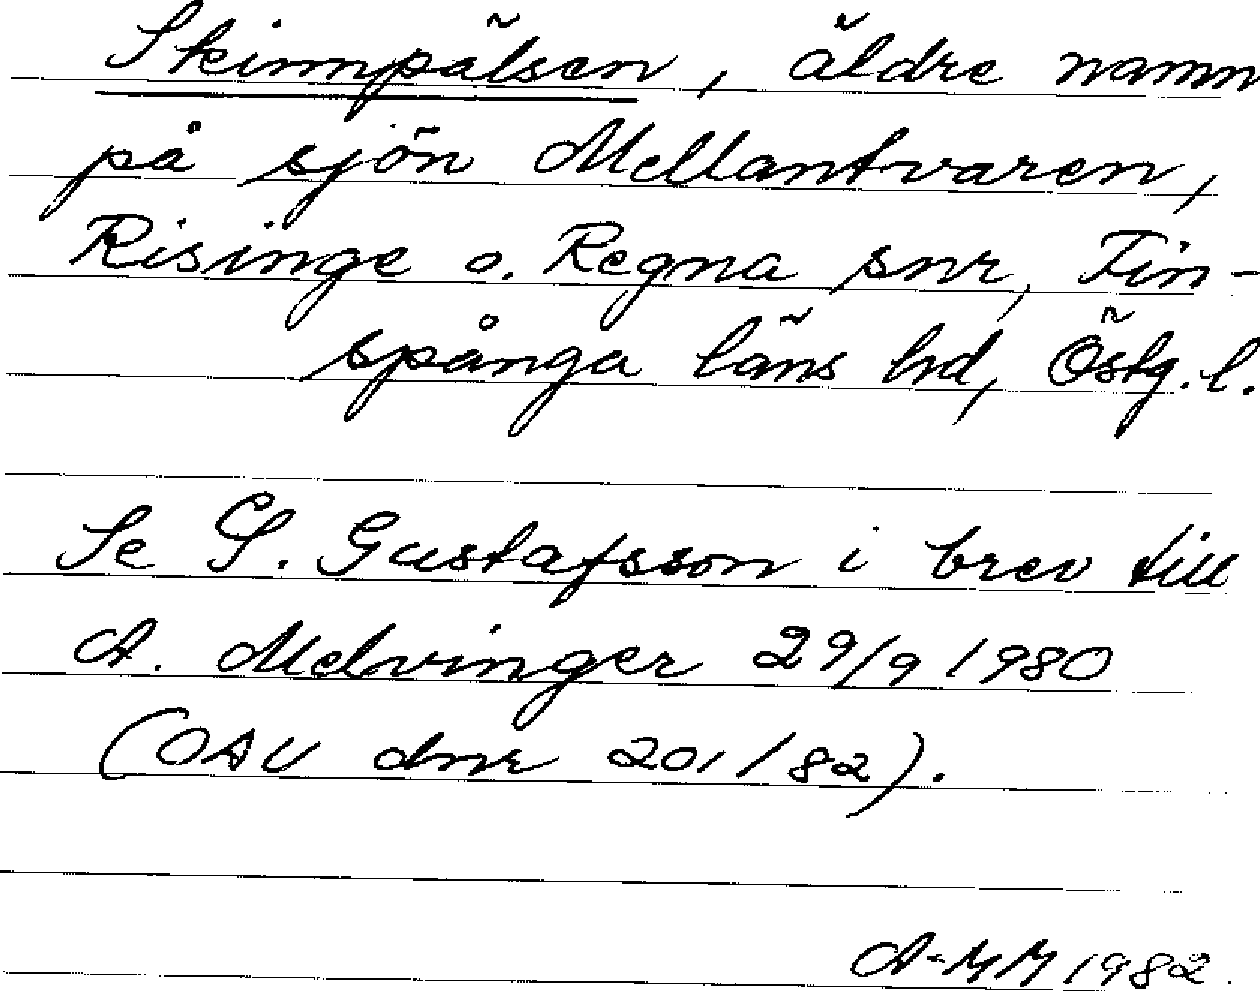 Skinnpälsen, äldre namn
på sjön Mellantvaren,
Risinge o. Regna snr, Fin-
spånga läns hd, Östg. l.
Se S. Gustafsson i brev till
A. Melvinger 29/9 1980
(OAU dnr 201/82).
A-MM 1982.